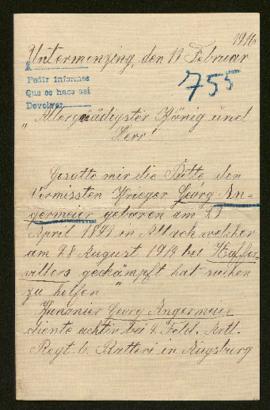 1916
Untermenzing, den 17 Februar
Pedir informes
Que se haga asi
Devolver
755
„Allergnädigster König und
Herr!
Gestatte mir die Bitte den
vermissten Krieger Georg An-
germeier geboren am 23
April 1891 in Allach welcher
am 28 August 1914 bei
gekämpft hat suchen
zu helfen"
Kanonier Georg Angermeier
diente achtiv bei 4. Feld. Art.
Regt. 6. Batteri in Augsburg